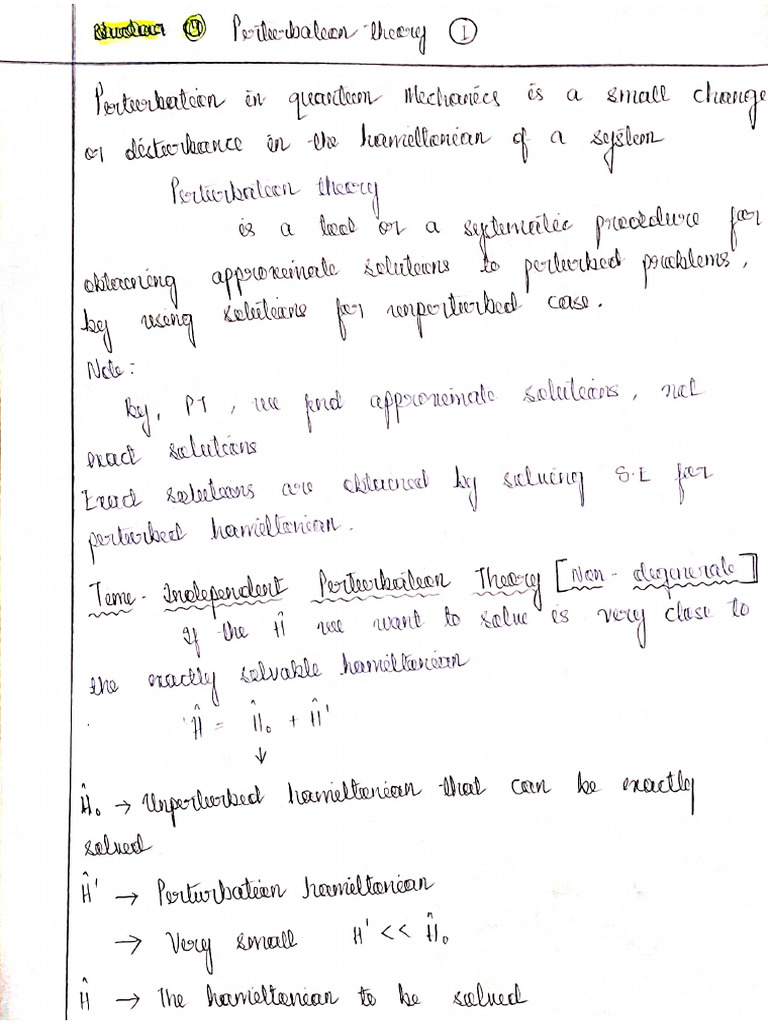 (4) Perturbation theory (1)
Perturbation in quantum Mechanics is a small change
or disturbance in the hamiltonian of a system
Perturbation theory
is a tool or a systematic procedure for
obtaining approximate solutions to perturbed problems,
by using solutions for unperturbed case.
Note:
By, PT, we find approximate solutions, not
exact solutions
Exact solutions are obtained by solving S.E for
perturbed hamiltonian.
Time-Independent Perturbation Theory [Non-degenerate]
If the Ĥ we want to solve is very close to
the exactly solvable hamiltonian
Ĥ = Ĥ₀ + Ĥ'
↓
Ĥ₀ → Unperturbed hamiltonian that can be exactly
solved
Ĥ' → Perturbation hamiltonian
→ Very small H' << Ĥ₀
Ĥ → The hamiltonian to be solved